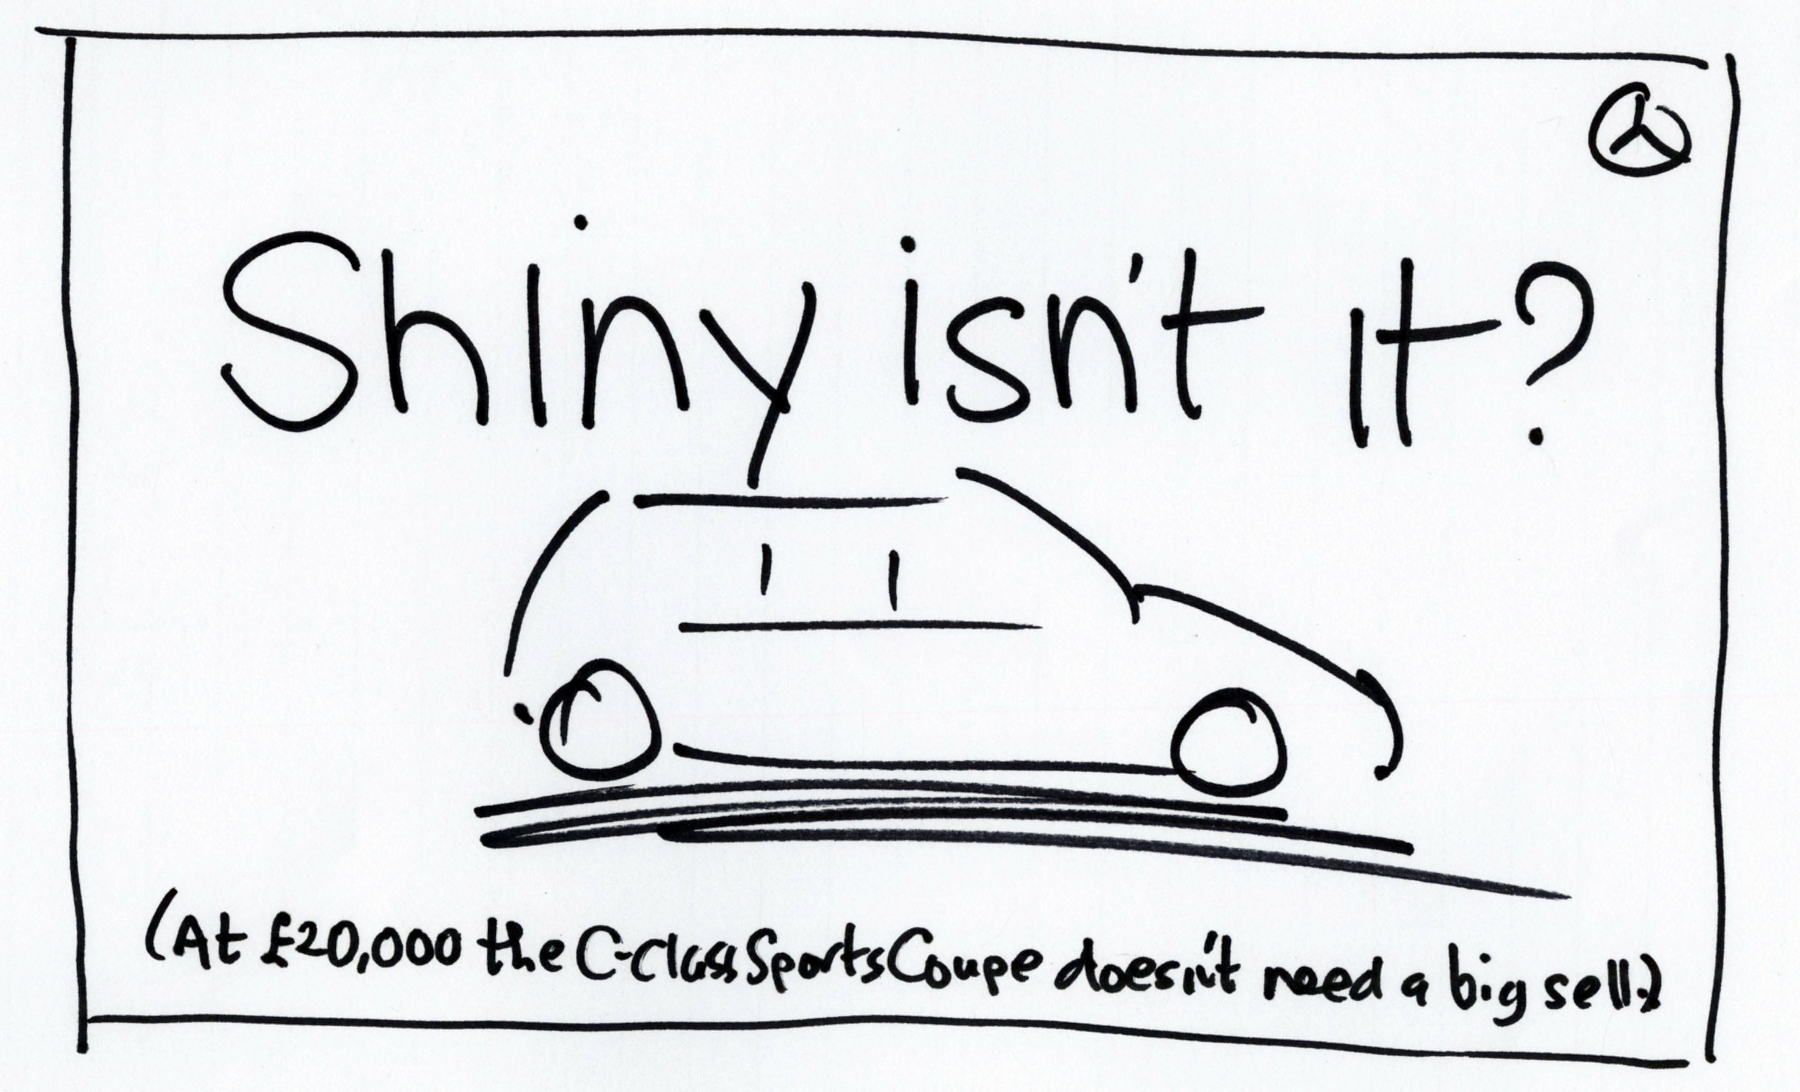 Shiny isn't it?
(At £20,000 the C-Class Sports Coupe doesn't need a big sell.)